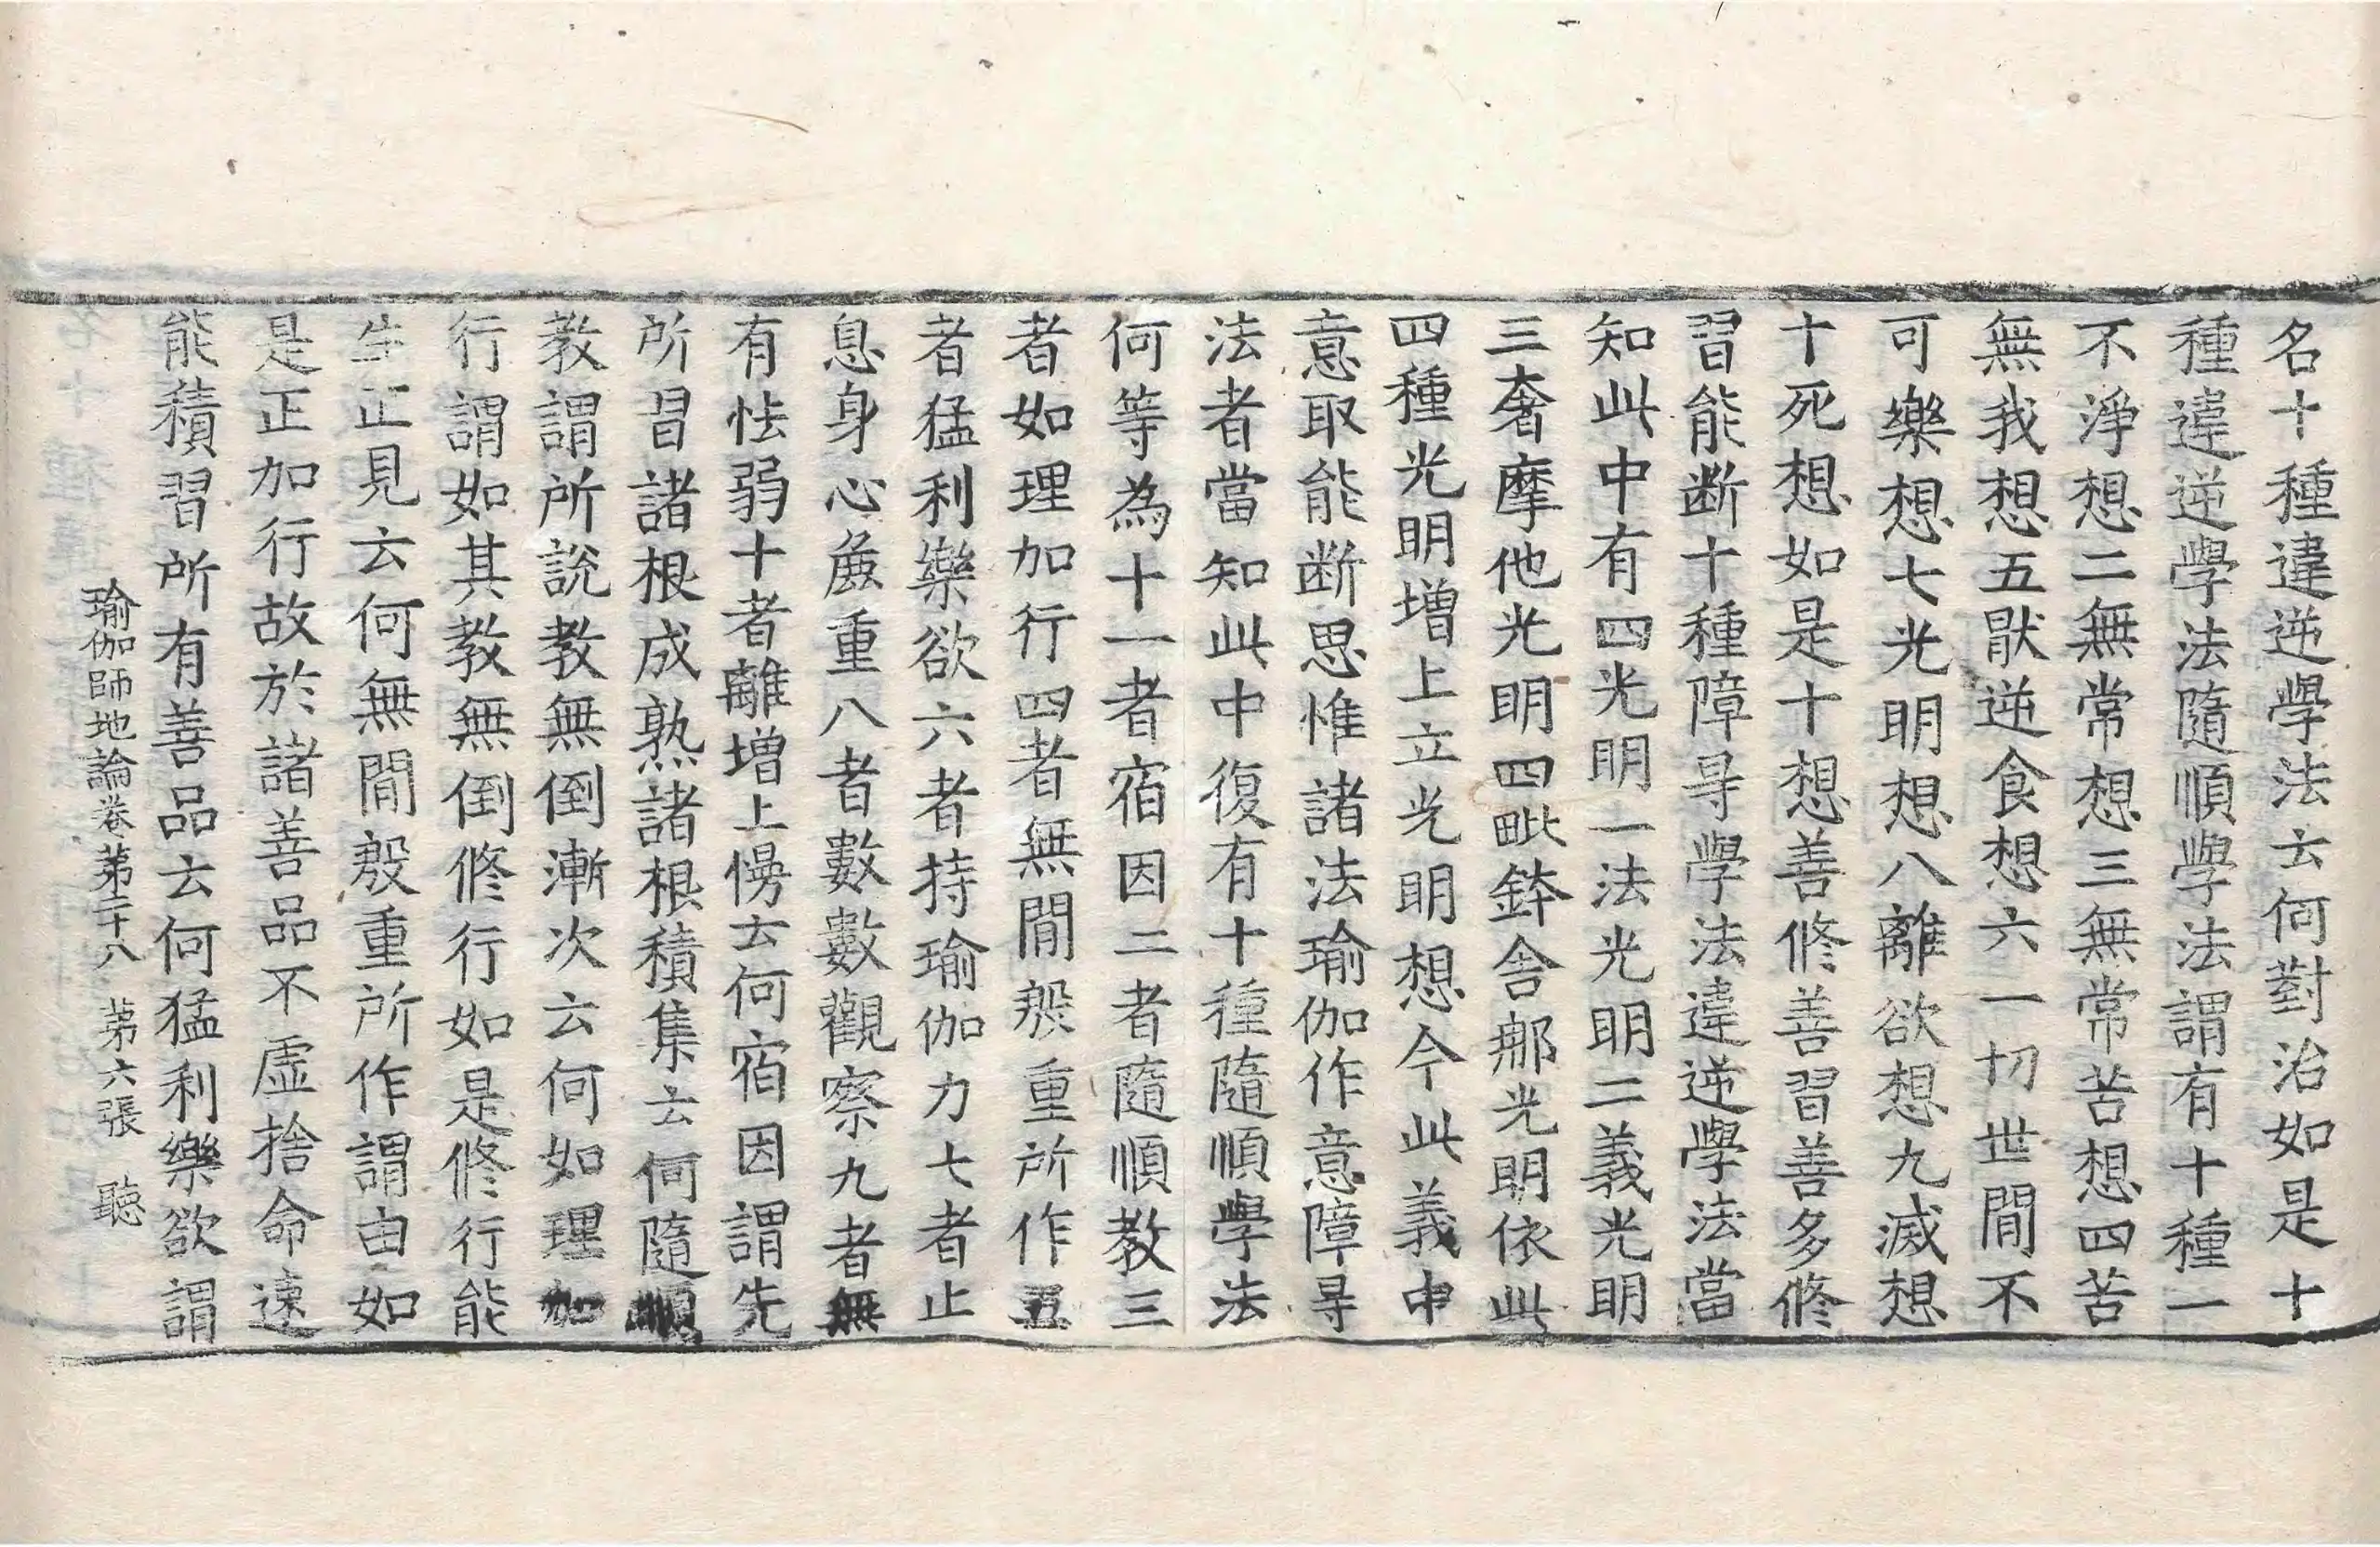 名十種違逆學法云何對治如是十
種違逆學法隨順學法謂有十種一
不淨想二無常想三無常苦想四苦
無我想五猒逆食想六一切世間不
可樂想七光明想八離欲想九滅想
十死想如是十想善修善習善多修
習能断十種障㝵學法違逆學法當
知此中有四光明一法光明二義光明
三奢摩他光明四毗鉢舍那光明依此
四種光明增上立光明想今此義中
意取能断思惟諸法瑜伽作意障㝵
法者當知此中復有十種隨順學法
何等為十一者宿因二者隨順教三
者如理加行四者無間殷重所作五
者猛利樂欲六者持瑜伽力七者止
息身心麁重八者數數觀察九者無
有怯弱十者離增上慢云何宿因謂先
所習諸根成熟諸根積集云何隨順
教謂所說教無倒漸次云何如理加
行謂如其教無倒修行如是修行能
生正見云何無間殷重所作謂由如
是正加行故於諸善品不虛捨命速
能積習所有善品云何猛利樂欲謂
瑜伽師地論卷苐二十八 苐六張 聽